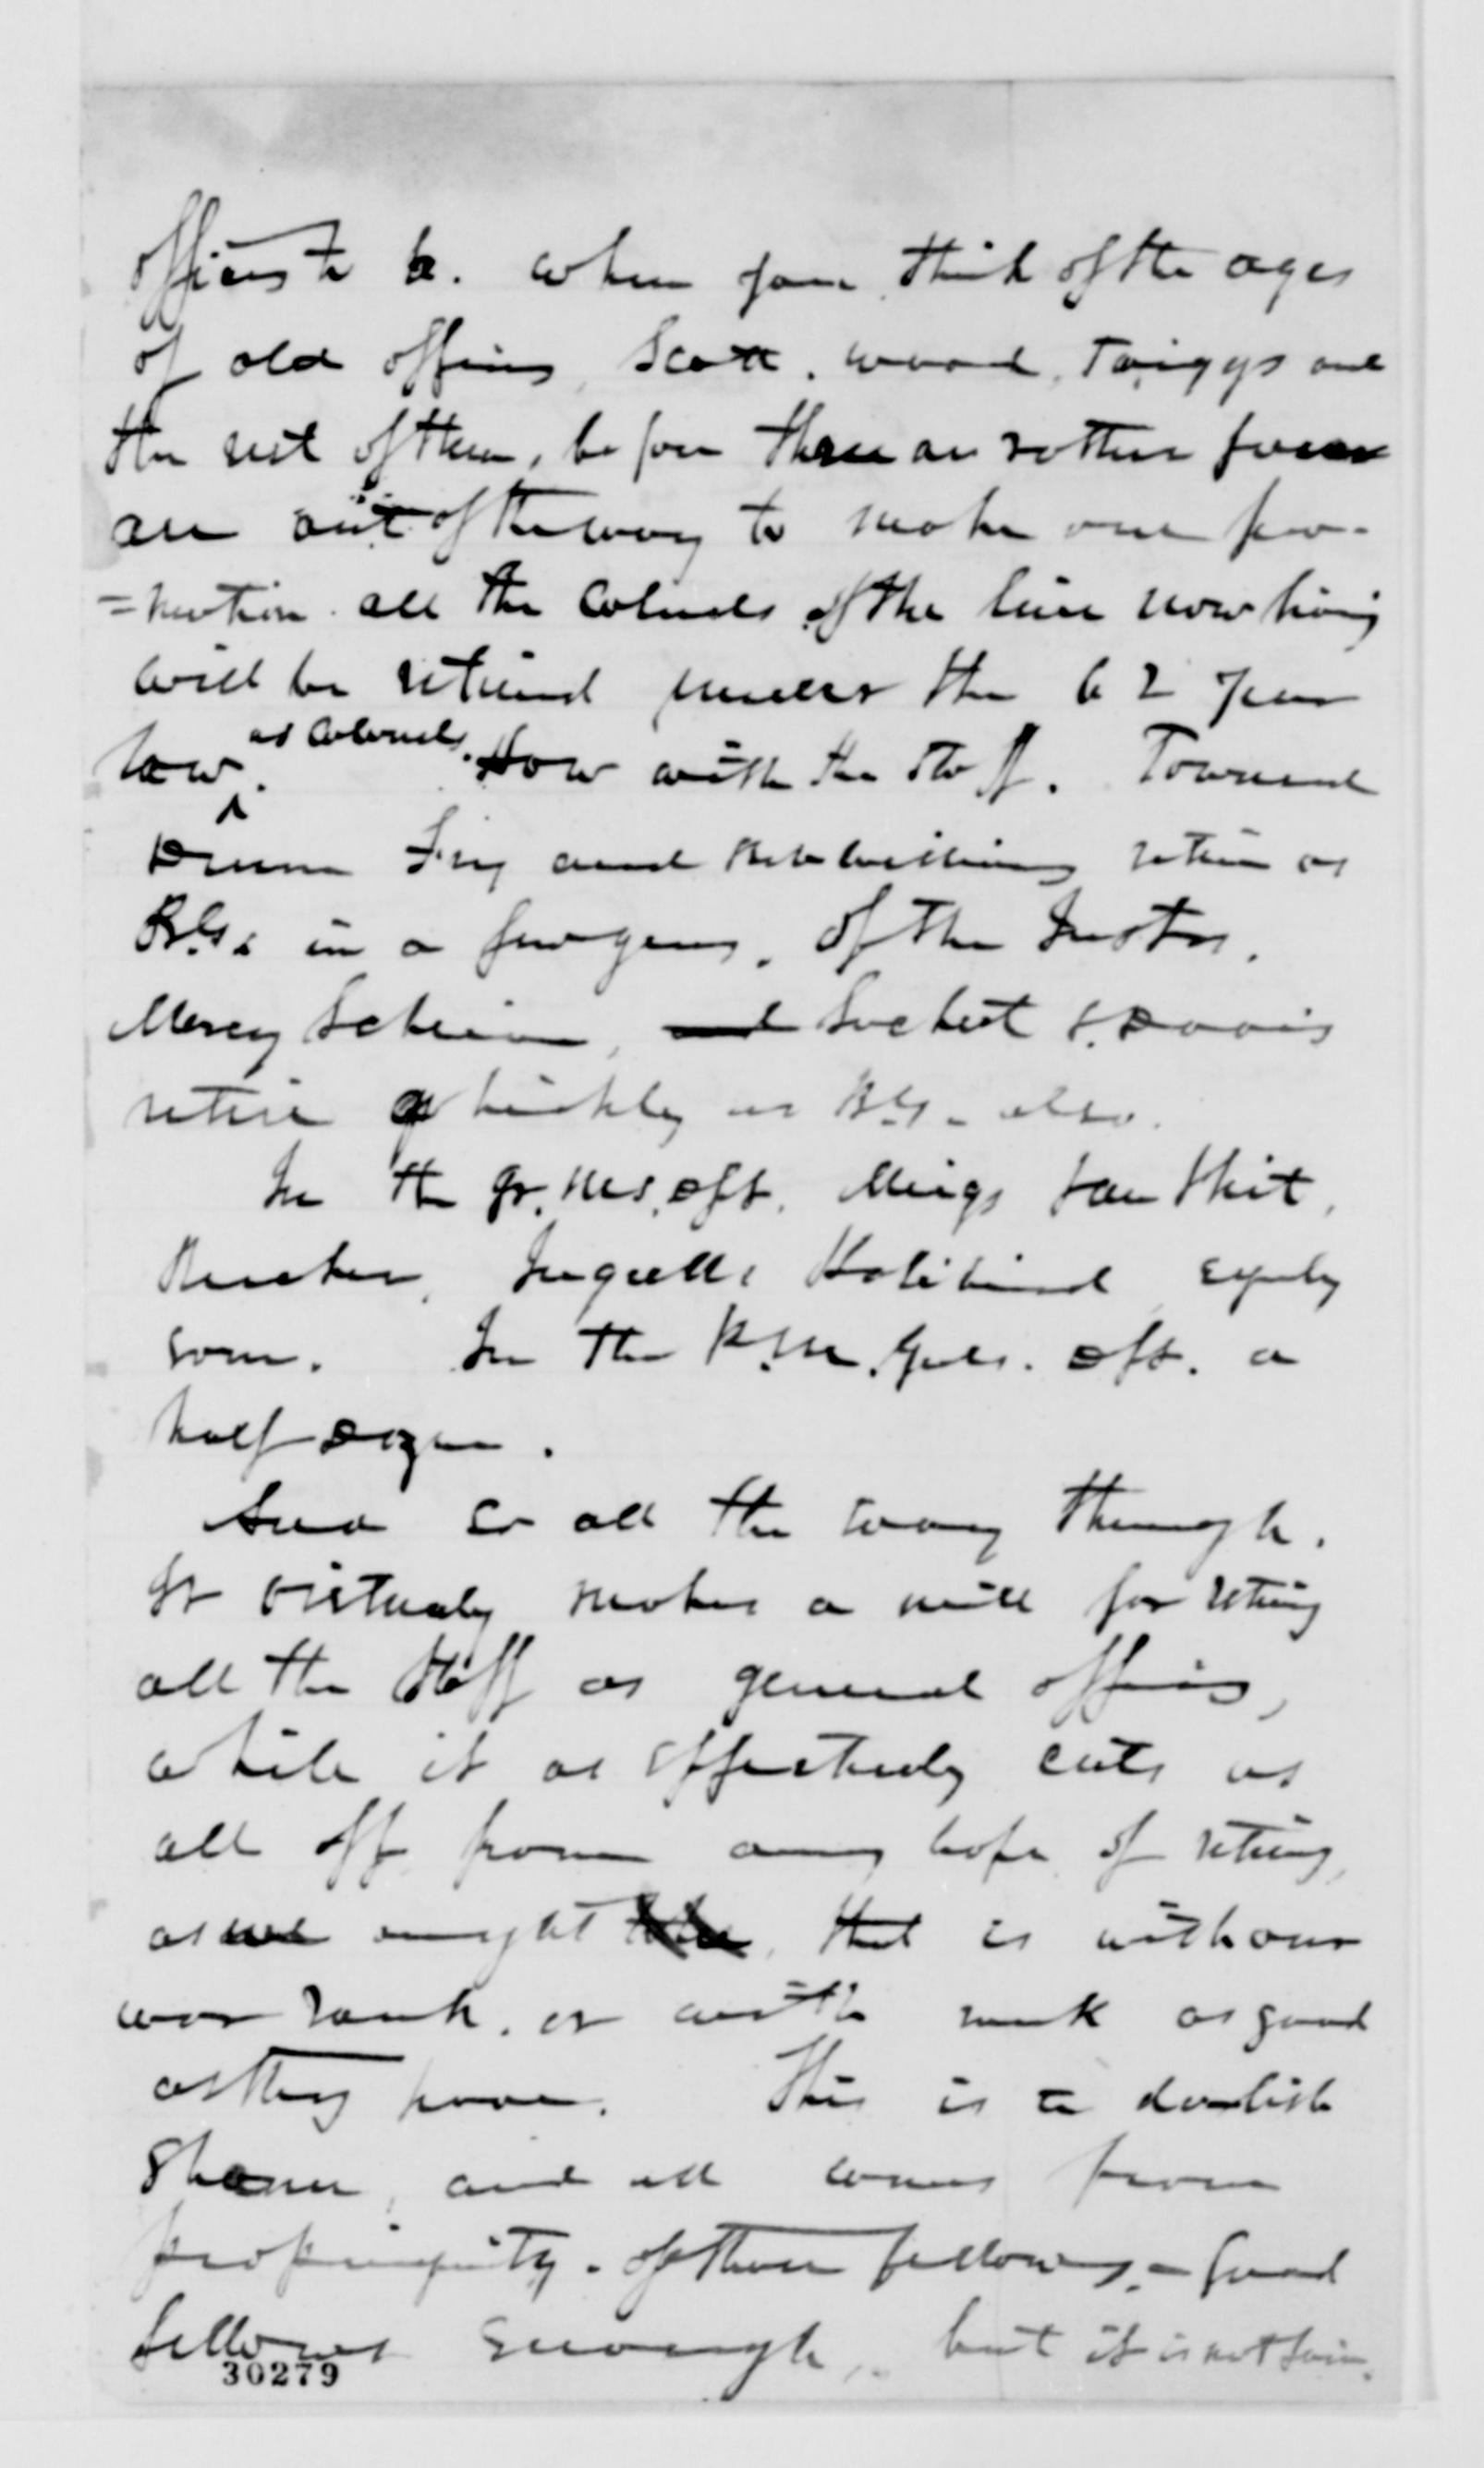 officers to be. When you think of the ages
of old officers, Scott, Wood, Twiggs and
the rest of them, before these an rotten
are out of the way to make one pro-
=motion. all the Colonels of the line now living
will be retired under the 62 year
law. as Colonels. How with the Staff. Townsend
Drum Fry and retire as
B.G.s in a few years. Of the Inspts.
Marcy Schriver, and Sacket & Davis
retire quickly as B.G. also.
In the Qr. Mrs. Dpt. Meigs
Rucker, Ingalls Holabird equally
soon. In the P.M. Genls. Dpt. a
half dozen.
And so all the way through.
It virtually makes a mill for retiring
all the staff as general officers,
while it as effectively cuts us
all off from any hope of retiring,
as we ought that is with our
war rank, or with rank as good
as they have. This is a devilish
Shame, and all comes from
propinquity. of these fellows, - good
fellows enough, but it is not fair.
30279